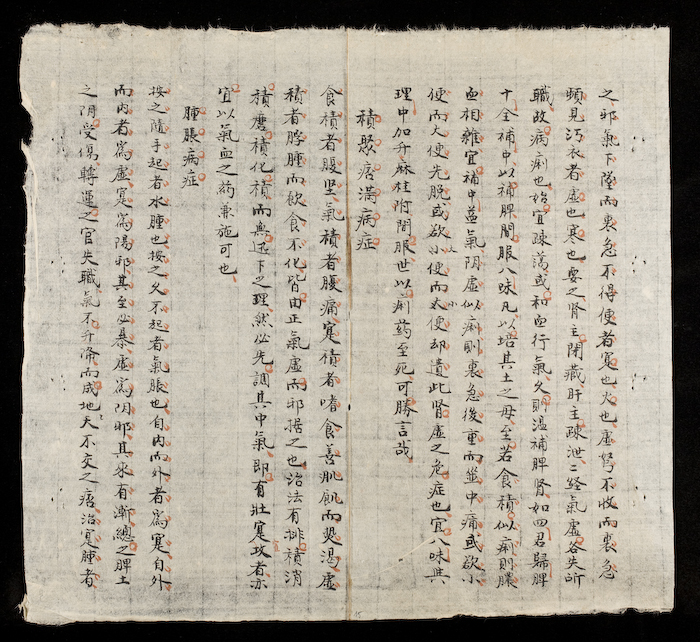 之邪氣下墜而裏急不得便者寔也火也虛努不收而裏急
頻見汚衣者虛也寒也要之腎主閉藏肝主疎泄二経氣虛各失所
職故病痢也始宜疎蕩或和血行氣久則温補脾腎如四君歸脾
十全補中以補脾間服八味凡以培其土之母至若食積似痢則膿
血相雜宜補中益氣阴虛似痢則裏急後重而並中痛或欲小
便而大便先脱或欲小便而大便却遺此腎虛之危症也宜八味與
理中加升麻桂附間服世以痢药至死可勝言哉
積聚痞滿病症
食積者腹坚氣積者腹痛寔積者嗜食善肌飢而哭渴虛
積者脖腫而飲食不化皆由正氣虛而邪据之也治法有排積消
積磨積化積而無迅下之理然必先調其中氣即有壯寔攻者亦
宜以氣血之药兼施可也
腫脹病症
按之隨手起者水腫也按之久不起者氣脹也自内而外者為寔自外
而内者為虛寔為陽邪其至必暴虛為阴邪其來有漸總之脾土
之阴受傷轉運之官失職氣不升降而成地天不交之痞治寔腫者